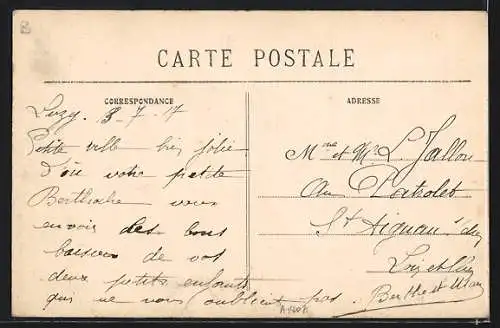 CARTE POSTALE
CORRESPONDANCE
ADRESSE
Luzy. 8-7-17
Petite ville bien jolie
D'où votre petite
Berthoche vous
envoie des bons
baisers de vos
deux petits enfants
qui ne vous oublient pas.
Berthe et
Mme et Mr L. Jallon
Au
St Aignan
Loir et Cher